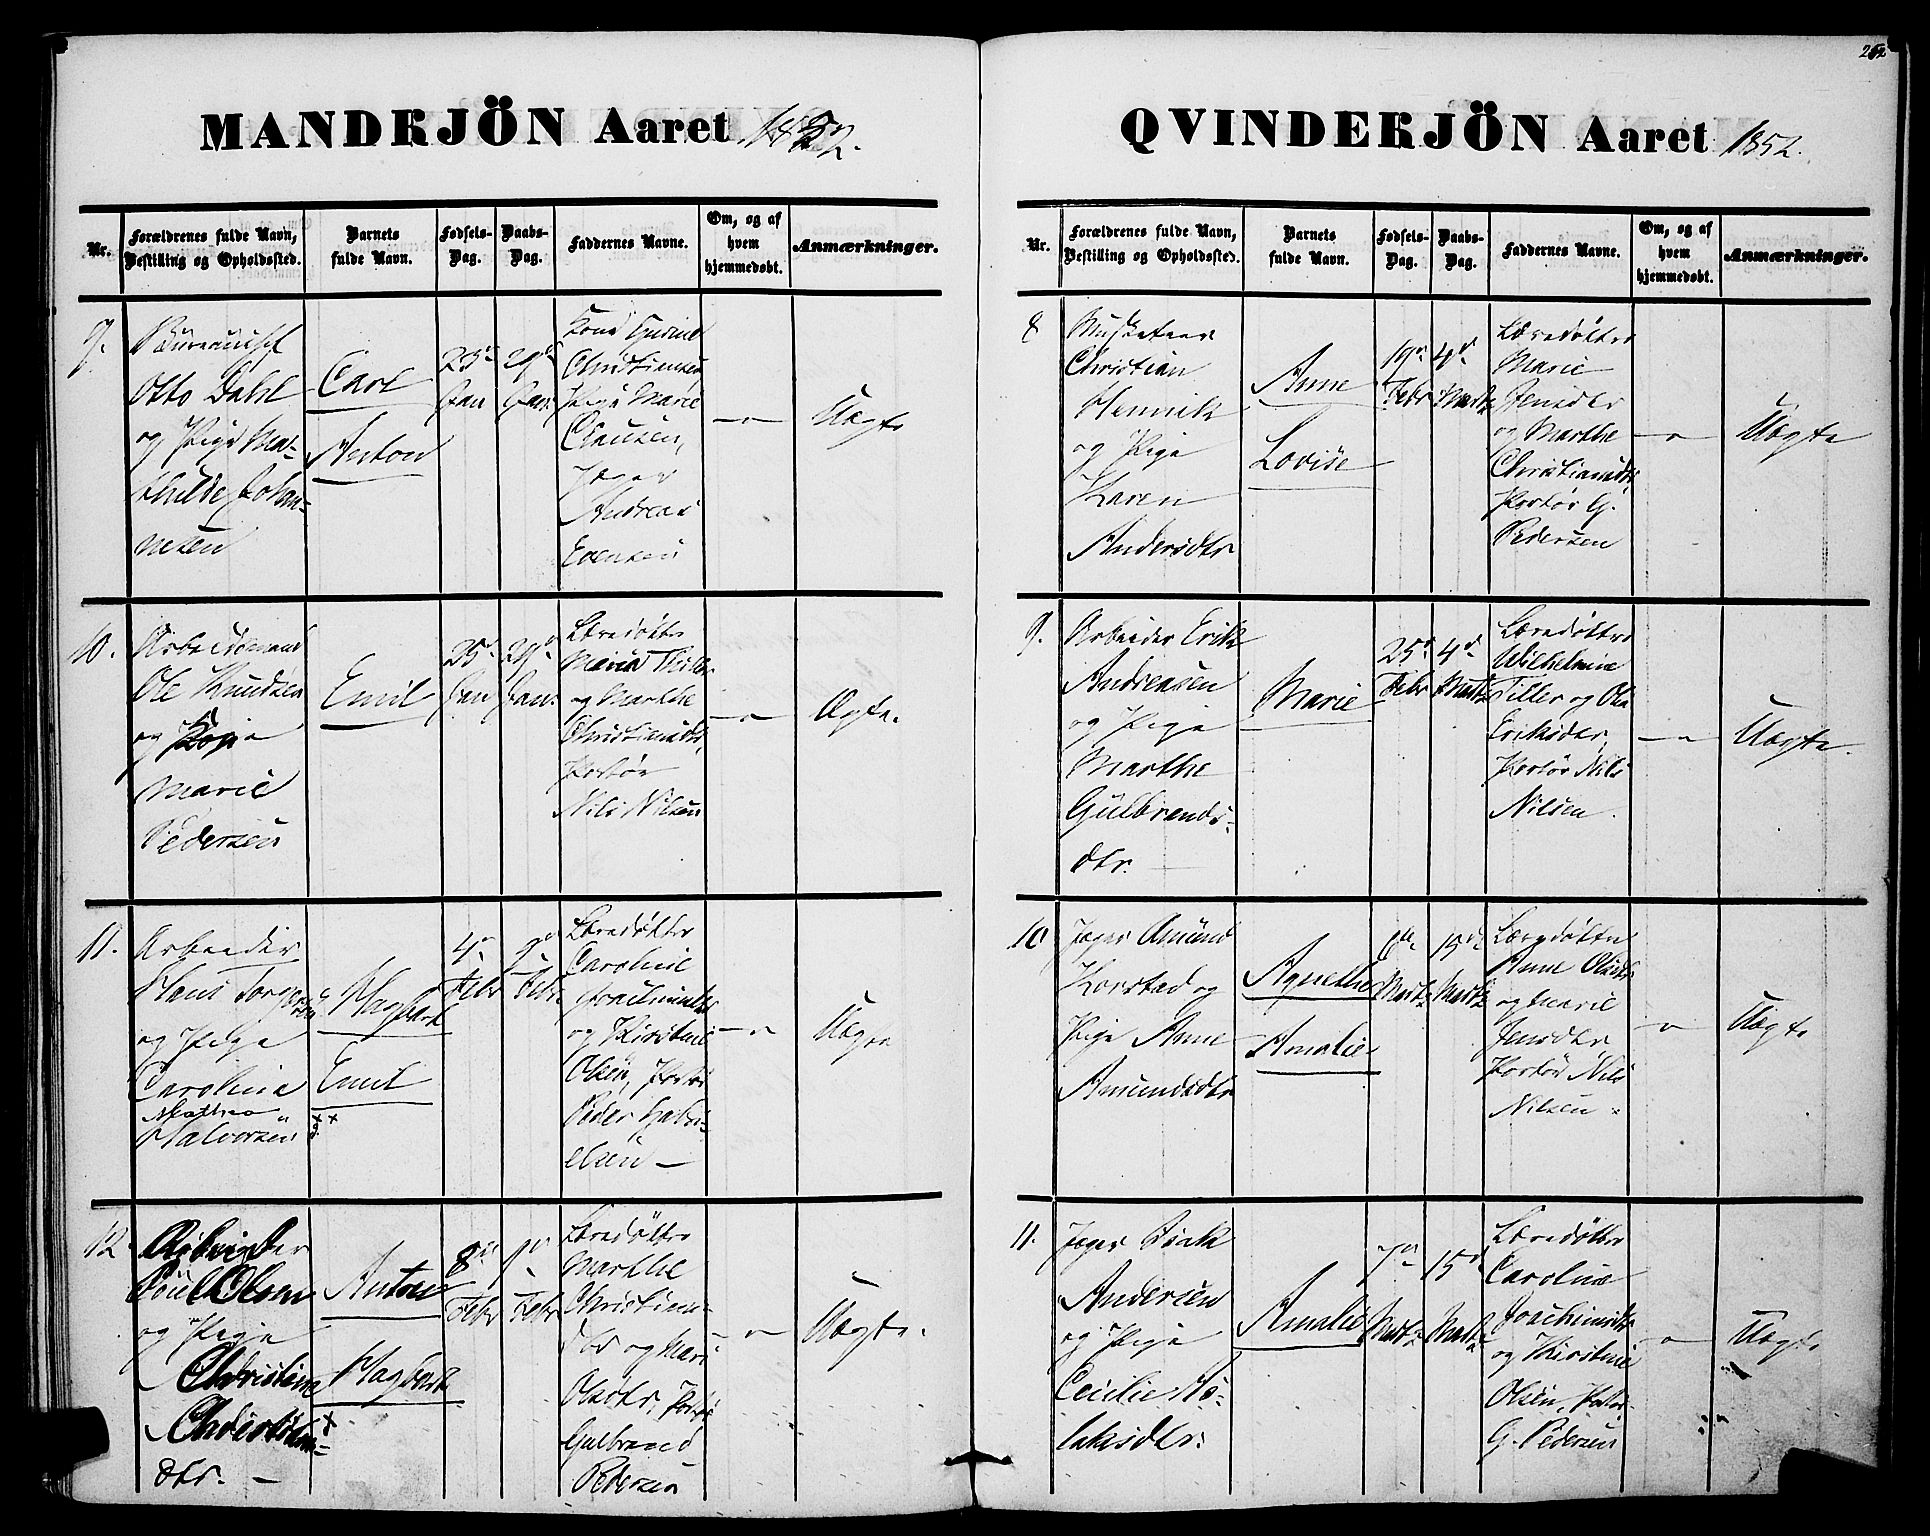 252
MANDKJÖN Aaret 1852.
Nr.
Forældrenes fulde Navn,
Bestilling og Opholdssted.
Barnets
fulde Navn.
Fødsels-
Dag.
Daabs-
Dag.
Faddernes Navne.
Om, og af
hvem
hjemmedøbt.
Anmærkninger.
9.
Otto Dahl
og Pige Ma-
thilde Johan-
nesen
Carl
Anton
25de
Jan
29de
Jan.
Kone
Christiansen
Pige Marie
Clausen,
Jæger
Andreas
Evensen
— " —
Uægte
10.
Arbeidsmand
Ole Knudsen
og Kone
Marie
Pedersen
Emil
25de
Jan
29de
Jan.
Læredøttre
Maria Thiller
og Marthe
Christiansdr,
Portør
Nils Nilsen
— " —
Ægte.
11.
Arbeider
Hans Torgersen
og Pige
Caroline
Mathea
Halvorsen
Hagbart
Emil
4de
Febr
9de
Febr
Læredøttre
Caroline
Joachimsdtr
og Kirstine
Olsen, Portør
Peder Gabri-
elsen —
— " —
Uægte
12.
Arbeider
Poul Olsen
og Pige
Christine
Christians-
dtr. —
Anton
Hagbart
8de
Febr
9de
Febr
Læredøttre
Marthe
Christians-
dtr og Mari
Olsdtr, Portør
Gulbrand
Pedersen
— " —
Uægte.
QVINDEKJÖN Aaret 1852.
Nr.
Forældrenes fulde Navn,
Bestilling og Opholdssted.
Barnets
fulde Navn.
Fødsels-
Dag.
Daabs-
Dag.
Faddernes Navne.
Om, og af
hvem
hjemmedøbt.
Anmærkninger.
8
Musketeer
Christian
Henrik
og Pige
Karen
Andersdtr
Anne
Lovise
19de
Febr
4de
Marts
Læredøttre
Marie
Jensdtr
og Marthe
Christiansdtr,
Portør G.
Pedersen
— " —
Uægte
9.
Arbeider Erik
Andreasen
og Pige
Marthe
Gulbrands-
dtr. —
Marie
25de
Febr
4de
Marts
Læredøttre
Wilhelmine
Tiller og Olea
Eriksdtr,
Portør Nils
Nilsen.
— " —
Uægte.
10
Jæger Amund
Korstad og
Pige Anne
Amundsdtr
Agnethe
Amalie
6te
Marts
15de
Marts
Læredøttre
Anne Olsdtr
og Marie
Jensdtr
Portør Nils
Nilsen
— " —
Uægte
11.
Jæger Isak
Andersen
og Pige
Cecilie As-
laksdtr.
Amalie
7de
Marts
15de
Marts
Læredøttre
Caroline
Joachimsdtr
og Kirstine
Olsen, Portør
G. Pedersen
— " —
Uægte